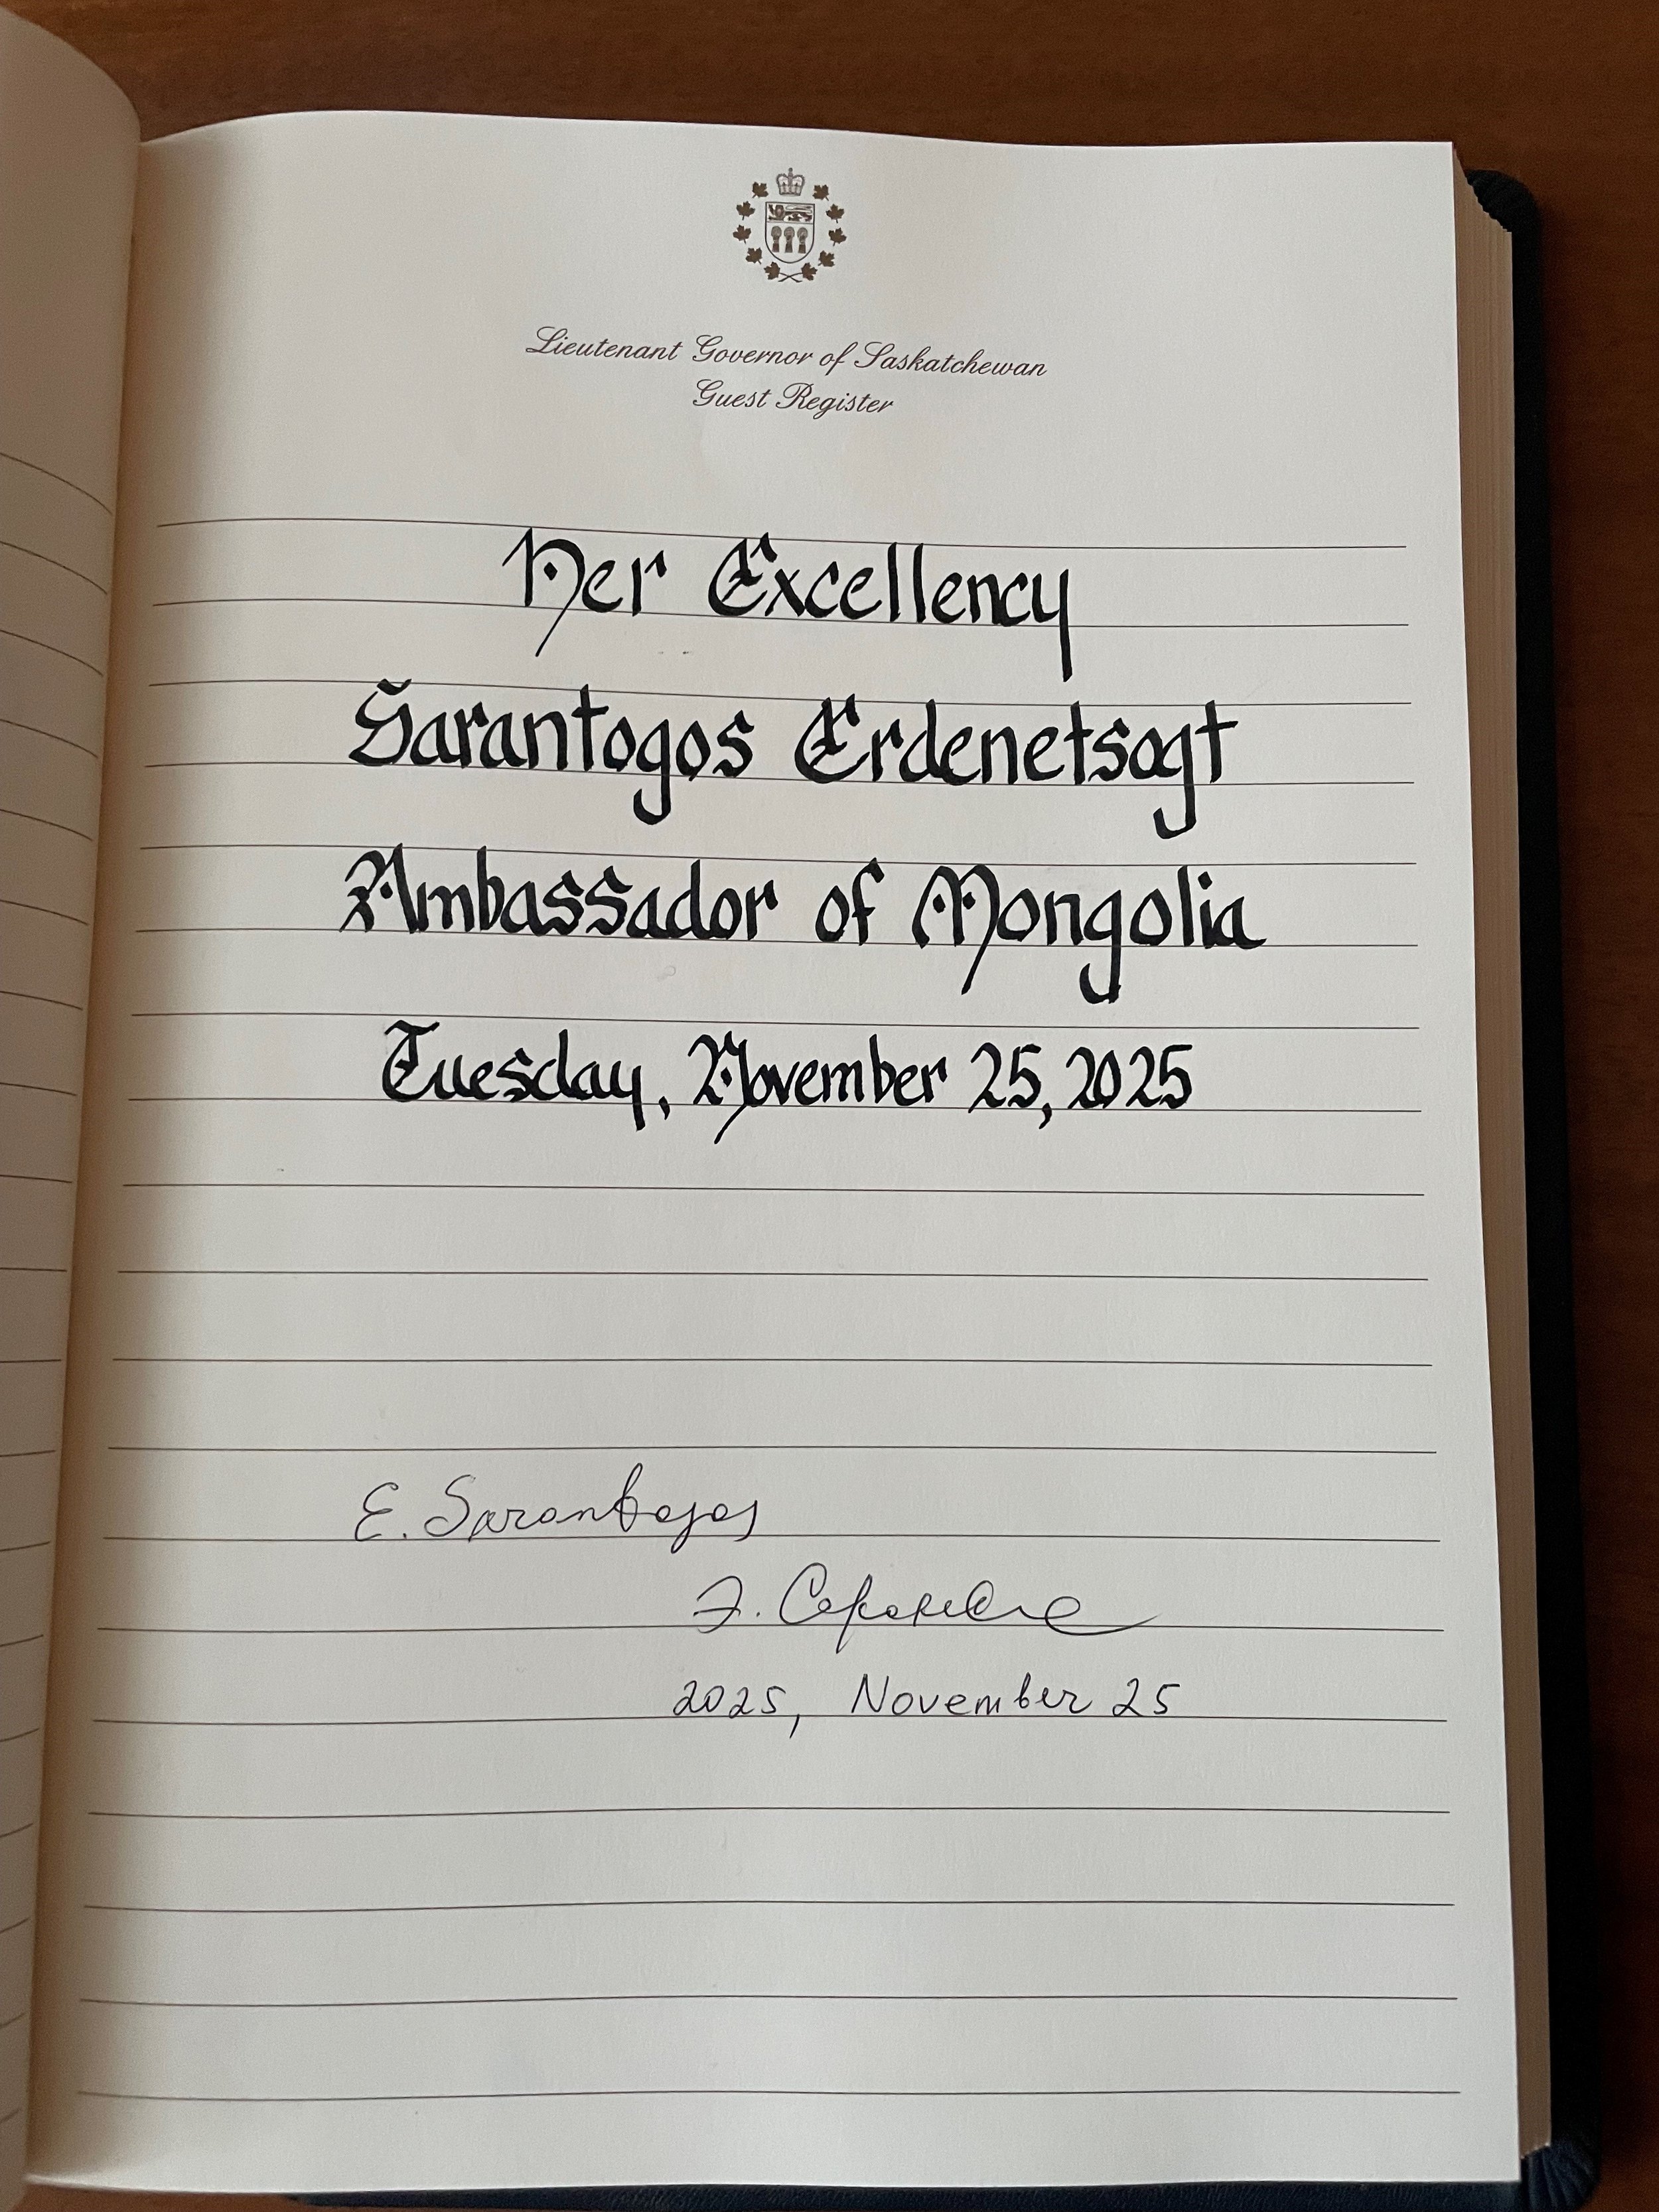 Lieutenant Governor of Saskatchewan
Guest Register
Her Excellency
Sarantogos Erdenetsogt
Ambassador of Mongolia
Tuesday, November 25, 2025
E. Sarantogos
Э.
2025, November 25